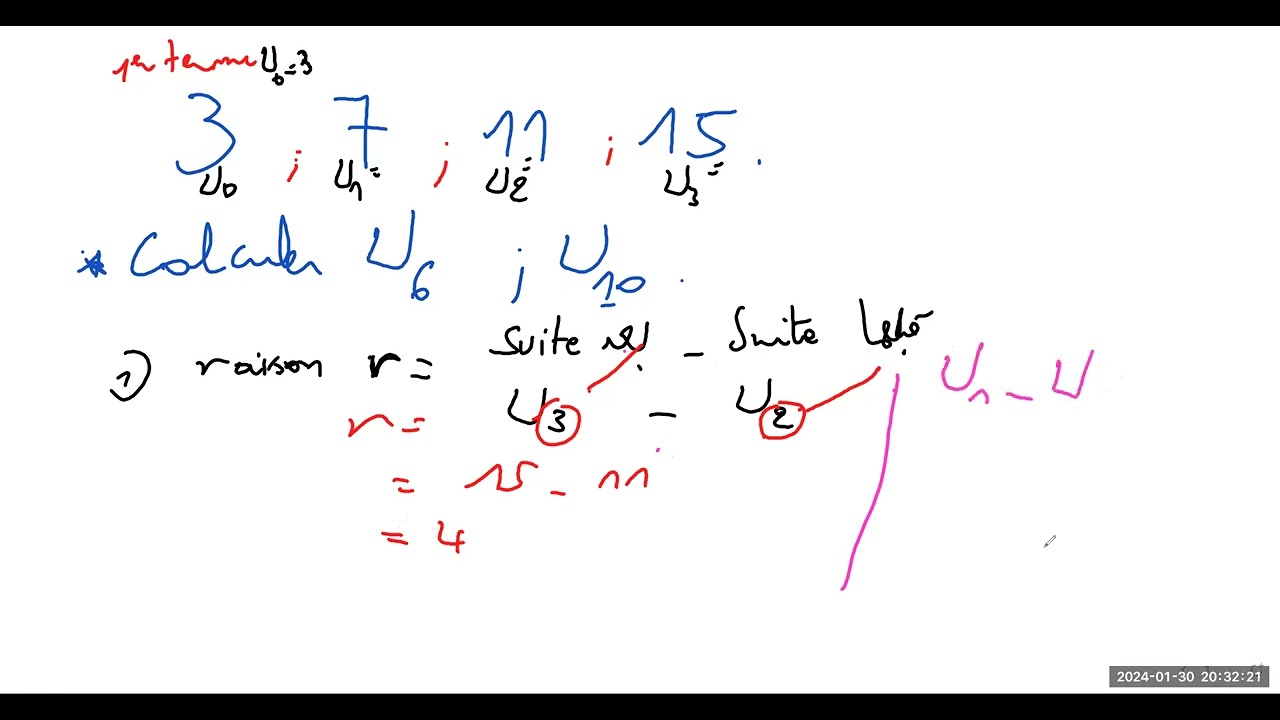 1er terme U0=3
3 ; 7 ; 11 ; 15 .
U0 U1= U2= U3=
* Calculer U6 ; U10 .
1) raison r = Suite - Suite
r = U3 - U2
U1 - U
= 15 - 11
= 4
2024-01-30 20:32:21